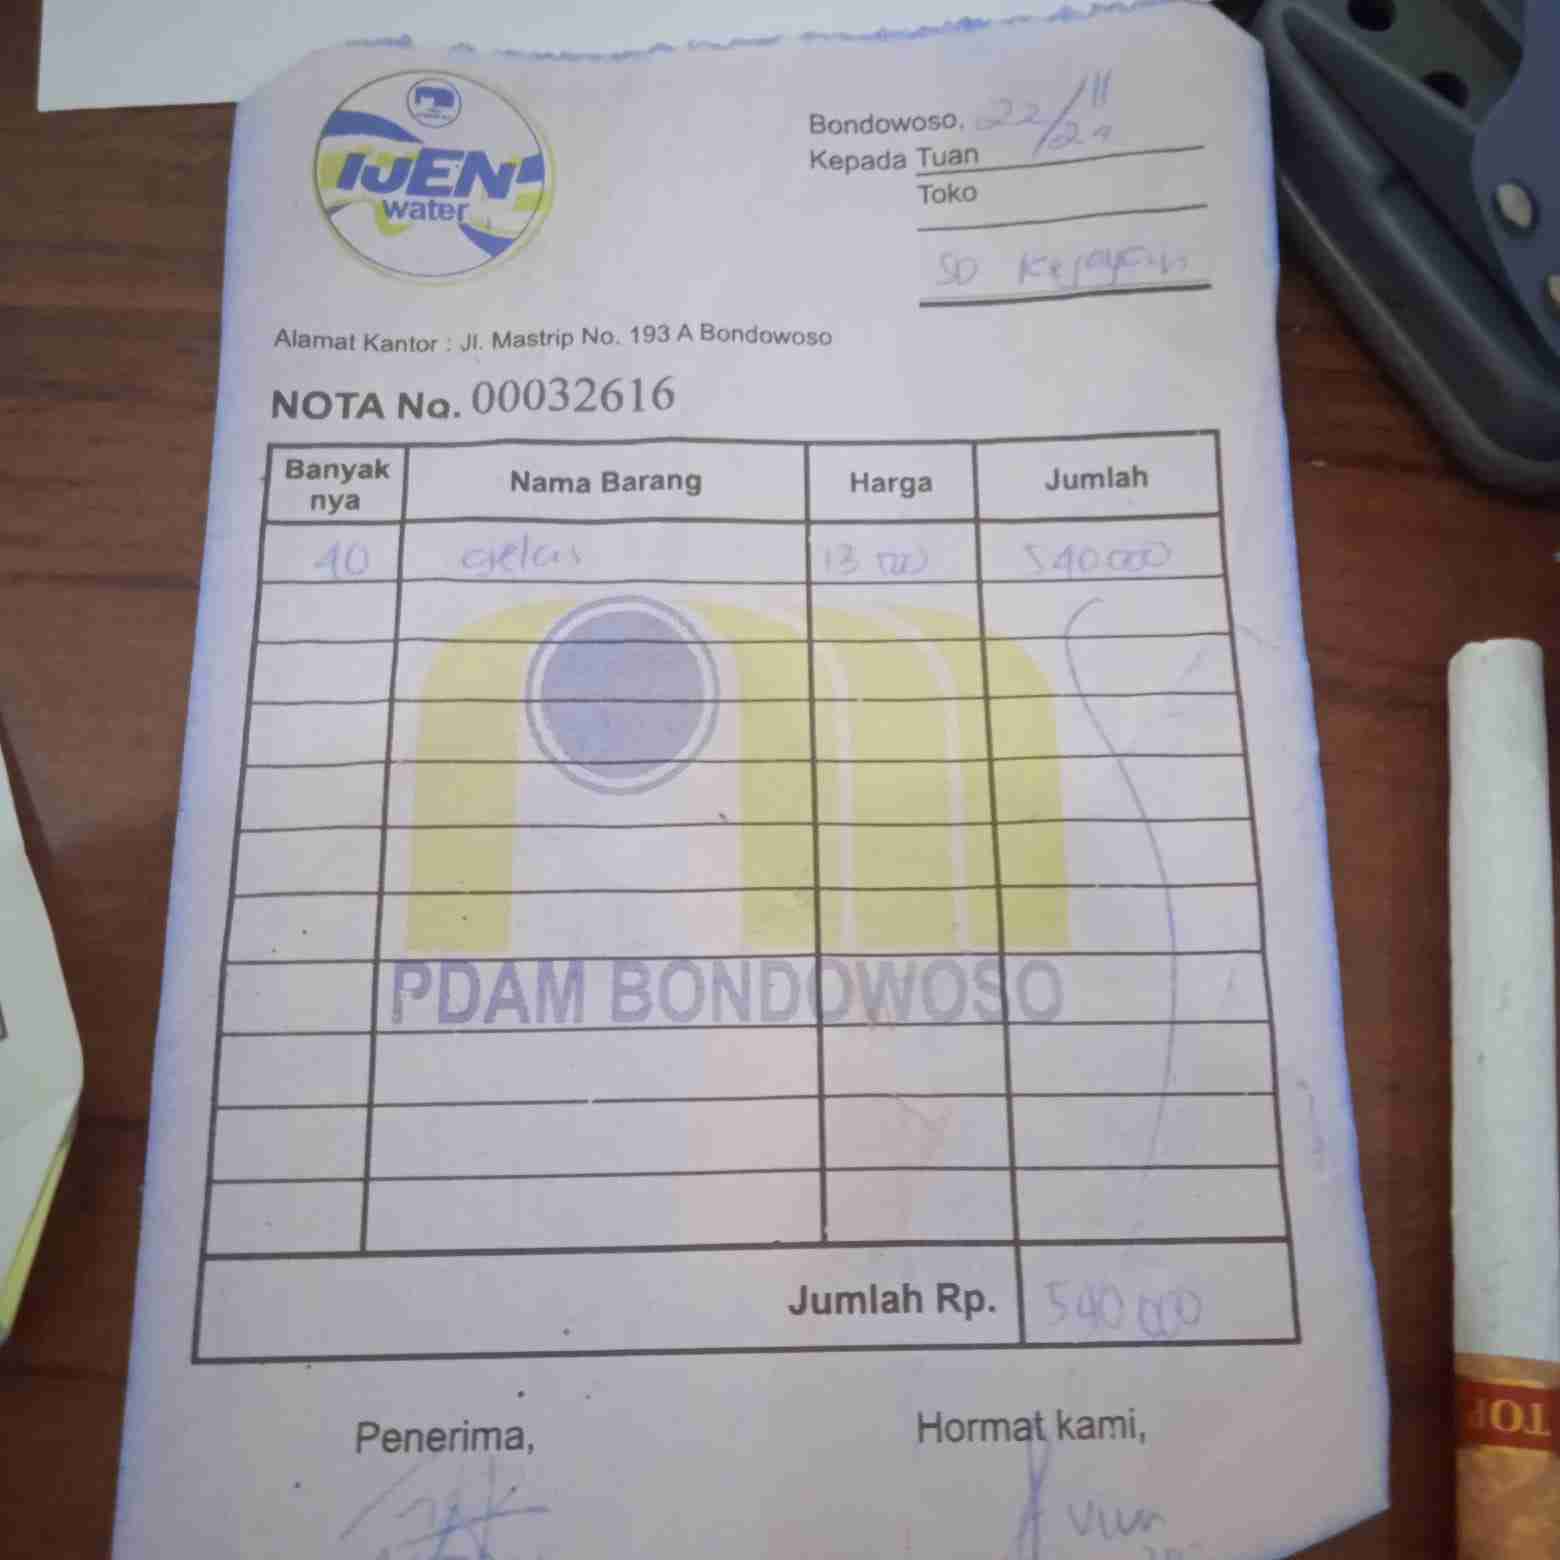 IJEN
water
Bondowoso, 22/11/24
Kepada Tuan
Toko
SD Kejayan
Alamat Kantor : Jl. Mastrip No. 193 A Bondowoso
NOTA No. 00032616
Banyak nya Nama Barang Harga Jumlah
40 Gelas 13 000 540 000
PDAM BONDOWOSO
Jumlah Rp. 540 000
Penerima, Hormat kami,
TOP